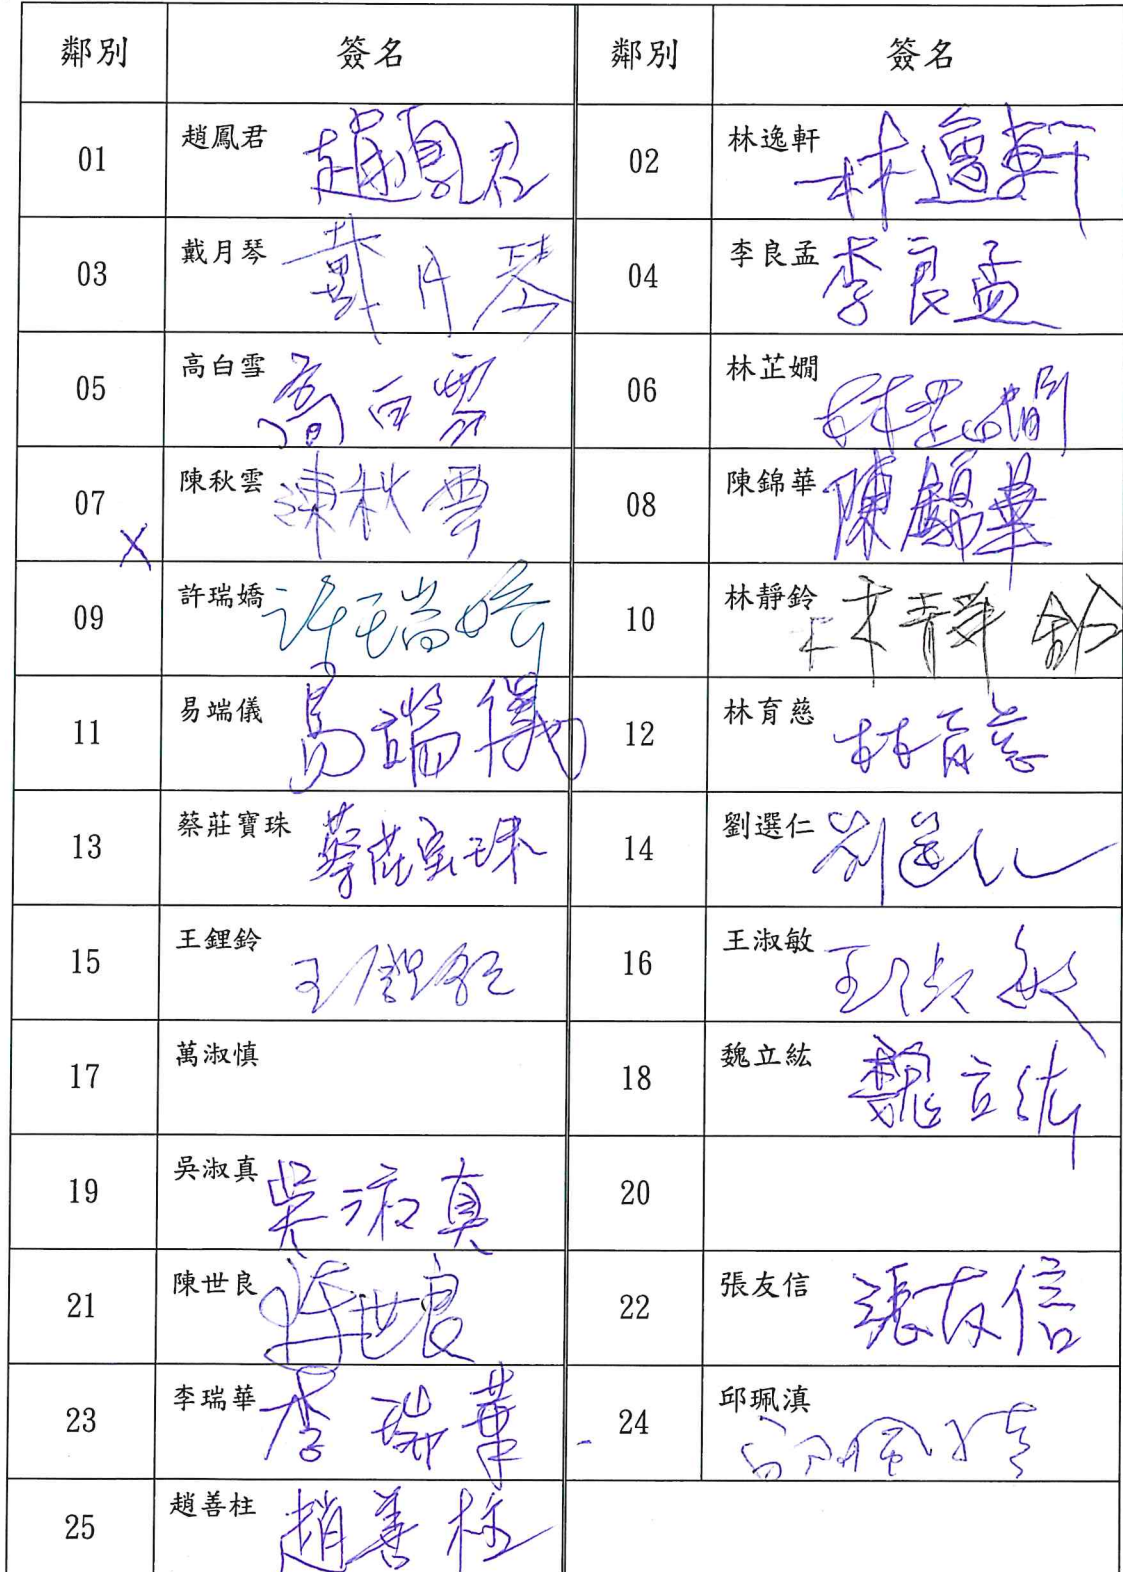 鄰別 簽名 鄰別 簽名
01 趙鳳君 趙鳳君 02 林逸軒 林逸軒
03 戴月琴 戴月琴 04 李良孟 李良孟
05 高白雪 高白雪 06 林芷嫺 林芷嫺
07 X 陳秋雲 陳秋雲 08 陳錦華 陳錦華
09 許瑞嬌 许瑞嬌 10 林靜鈴 林靜鈴
11 易端儀 易端儀 12 林育慈 林育慈
13 蔡莊寶珠 蔡莊宝珠 14 劉選仁 劉選仁
15 王鋰鈴 王鋰鈴 16 王淑敏 王淑敏
17 萬淑慎 18 魏立紘 魏立紘
19 吳淑真 吳淑真 20
21 陳世良 陳世良 22 張友信 張友信
23 李瑞華 李瑞華 24 邱珮滇 邱珮滇
25 趙善柱 趙善柱